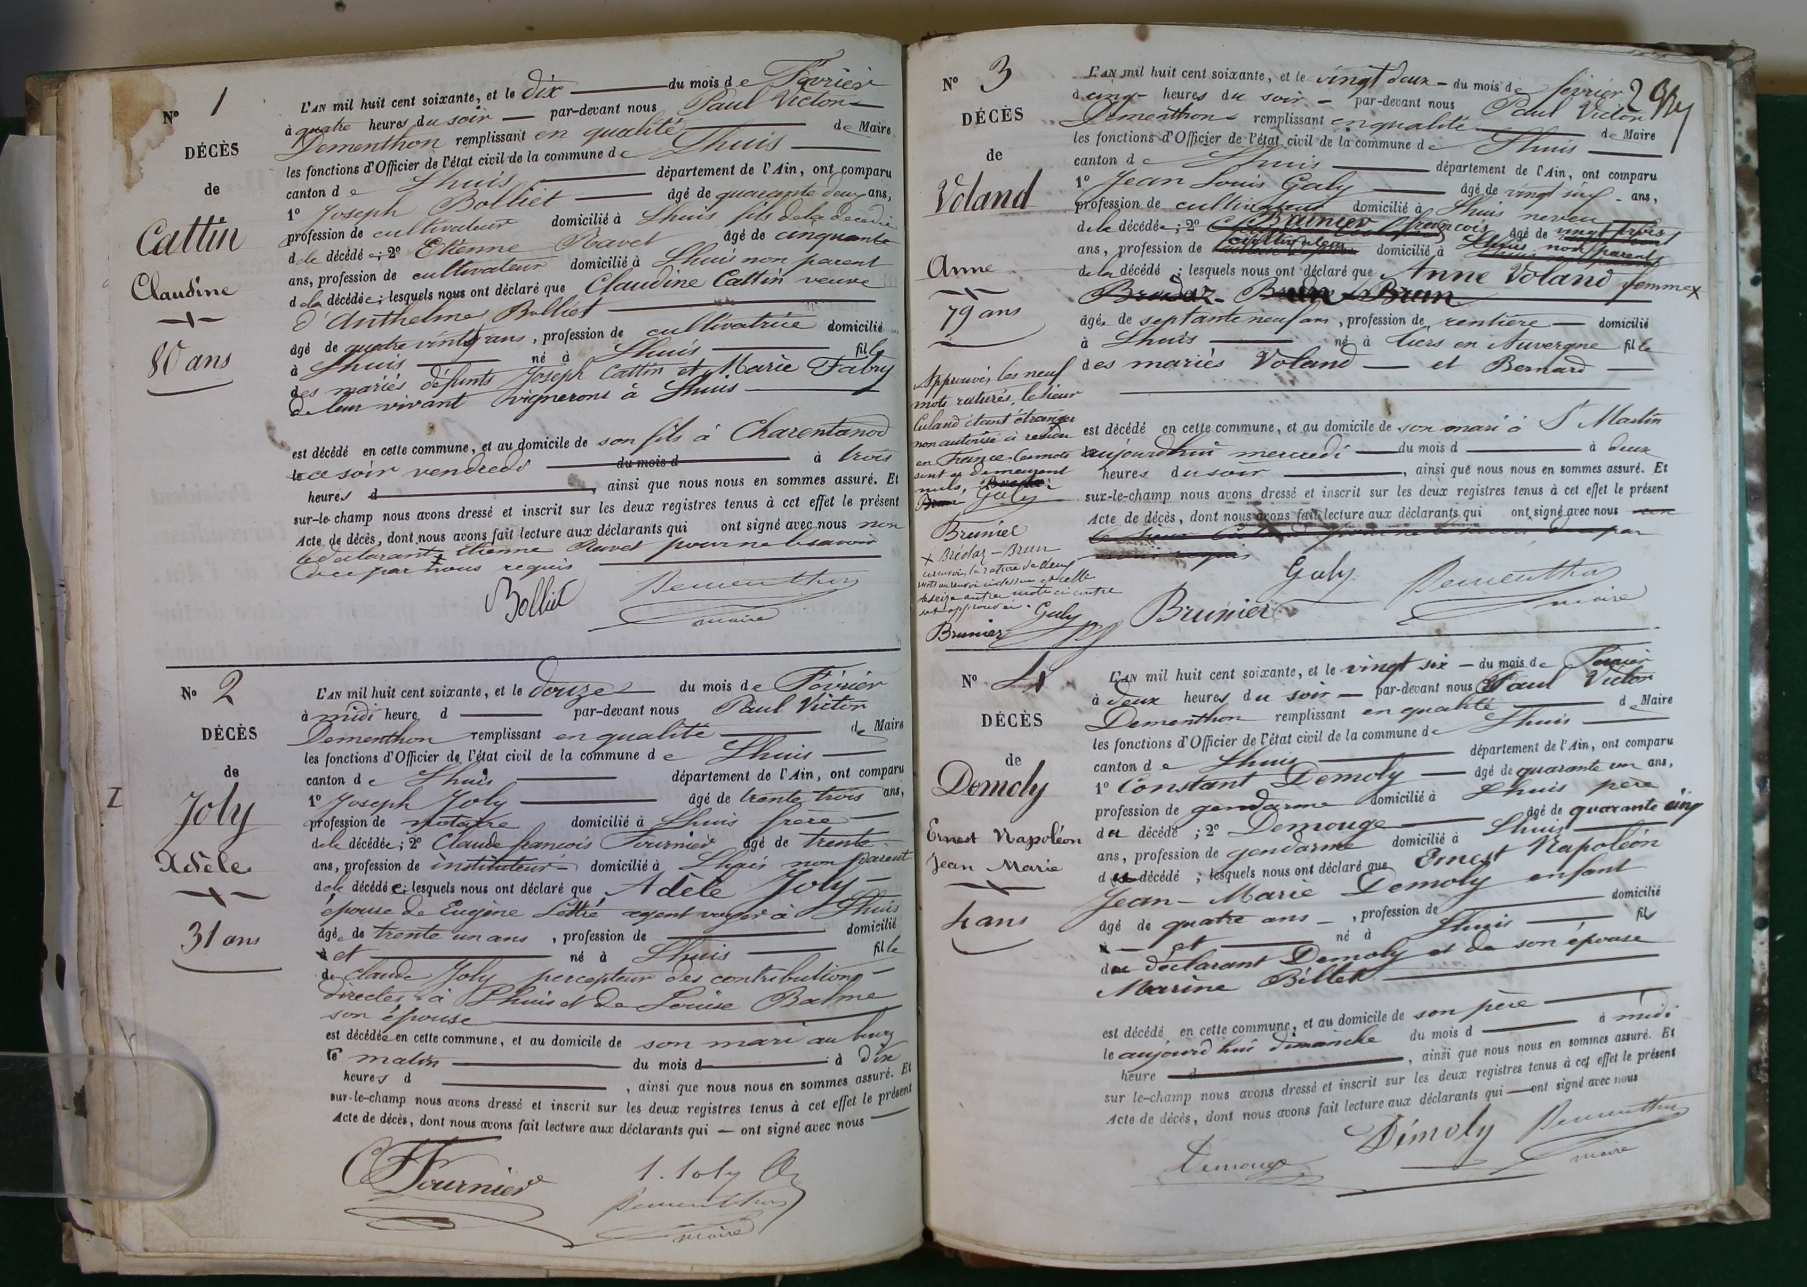 N° 1
DÉCÈS
de
Cattin
Claudine
80 ans
L'AN mil huit cent soixante, et le dix du mois de Février
à quatre heures du soir par-devant nous Paul Victor
Dementhon remplissant en qualité de Maire
les fonctions d'Officier de l'état civil de la commune de Lhuis
canton de Lhuis département de l'Ain, ont comparu
1° Joseph Bolliet âgé de quarante deux ans,
profession de cultivateur domicilié à Lhuis fils de la décédée
de la décédée; 2° Etienne Ravet âgé de cinquante
ans, profession de cultivateur domicilié à Lhuis non parent
de la décédée; lesquels nous ont déclaré que Claudine Cattin veuve
d'Anthelme Bolliet
âgé de quatre vingts ans, profession de cultivatrice domicilié
à Lhuis né à Lhuis fille
des mariés défunts Joseph Cattin et Marie Fabry
de leur vivant vignerons à Lhuis
est décédé en cette commune, et au domicile de son fils à Charentanod
le ce soir vendredi du mois d à trois
heures d ainsi que nous nous en sommes assuré. Et
sur-le-champ nous avons dressé et inscrit sur les deux registres tenus à cet effet le présent
Acte de décès, dont nous avons fait lecture aux déclarants qui ont signé avec nous non
le déclarant Etienne Ravet pour ne le savoir
de ce par nous requis
Bolliet Dementhon
maire
N° 2
DÉCÈS
de
Joly
Adèle
31 ans
L'AN mil huit cent soixante, et le douze du mois de Février
à midi heure d par-devant nous Paul Victor
Dementhon remplissant en qualité de Maire
les fonctions d'Officier de l'état civil de la commune de Lhuis
canton de Lhuis département de l'Ain, ont comparu
1° Joseph Joly âgé de trente trois ans,
profession de notaire domicilié à Lhuis frère
de la décédée; 2° Claude françois Fournier âgé de trente
ans, profession de instituteur domicilié à Lhuis non parent
de la décédée; lesquels nous ont déclaré que Adèle Joly
épouse de Eugène agent voyer à Lhuis
âgé de trente un ans, profession de domicilié
à et né à Lhuis fille
de Claude Joly percepteur des contributions
directes à Lhuis et de Louise Balme
son épouse
est décédée en cette commune, et au domicile de son mari au bourg
le matin du mois d à dix
heures d, ainsi que nous nous en sommes assuré. Et
sur-le-champ nous avons dressé et inscrit sur les deux registres tenus à cet effet le présent
Acte de décès, dont nous avons fait lecture aux déclarants qui ont signé avec nous
Fournier J. Joly
Dementhon
maire
N° 3
DÉCÈS
de
Voland
Anne
79 ans
L'AN mil huit cent soixante, et le vingt deux du mois de février 2
à cinq heures du soir par-devant nous Paul Victor
Dementhon remplissant en qualité de Maire
les fonctions d'Officier de l'état civil de la commune de Lhuis
canton de Lhuis département de l'Ain, ont comparu
1° Jean Louis Galy âgé de vingt six ans,
profession de cultivateur domicilié à Lhuis neveu
de la décédée; 2° Brunier françois âgé de vingt trois
ans, profession de domicilié à Lhuis non parents
de la décédé; lesquels nous ont déclaré que Anne Voland femme x
Bredaz - Brun
âgé de septante neuf ans, profession de rentière domicilié
à Lhuis né à tiers en Auvergne fille
des mariés Voland et Bernard
est décédé en cette commune, et au domicile de son mari à St Martin
aujourd'hui mercredi du mois d à deux
heures du soir, ainsi que nous nous en sommes assuré. Et
sur-le-champ nous avons dressé et inscrit sur les deux registres tenus à cet effet le présent
Acte de décès, dont nous avons fait lecture aux déclarants qui ont signé avec nous
Galy Dementhon
Brunier maire
Approuvés les neuf
mots raturés, le sieur
étant étranger
non autorisé à résider
en France. Les mots
sont et demeurent
nuls,
Galy
Brunier
x Bredaz - Brun
Galy
Brunier
N° 4
DÉCÈS
de
Demoly
Ernest Napoléon
Jean Marie
4 ans
L'AN mil huit cent soixante, et le vingt six du mois de Février
à deux heures du soir par-devant nous Paul Victor
Dementhon remplissant en qualité de Maire
les fonctions d'Officier de l'état civil de la commune de Lhuis
canton de Lhuis département de l'Ain, ont comparu
1° Constant Demoly âgé de quarante un ans,
profession de gendarme domicilié à Lhuis père
du décédé; 2° Demouge âgé de quarante cinq
ans, profession de gendarme domicilié à Lhuis
du décédé; lesquels nous ont déclaré que Ernest Napoléon
Jean-Marie Demoly enfant
âgé de quatre ans, profession de domicilié
à et né à Lhuis fils
du déclarant Demoly et de son épouse
Marine Billet
est décédé en cette commune, et au domicile de son père
le aujourd'hui dimanche du mois d à midi
heure d, ainsi que nous nous en sommes assuré. Et
sur-le-champ nous avons dressé et inscrit sur les deux registres tenus à cet effet le présent
Acte de décès, dont nous avons fait lecture aux déclarants qui ont signé avec nous
Demouge Démoly Dementhon
maire